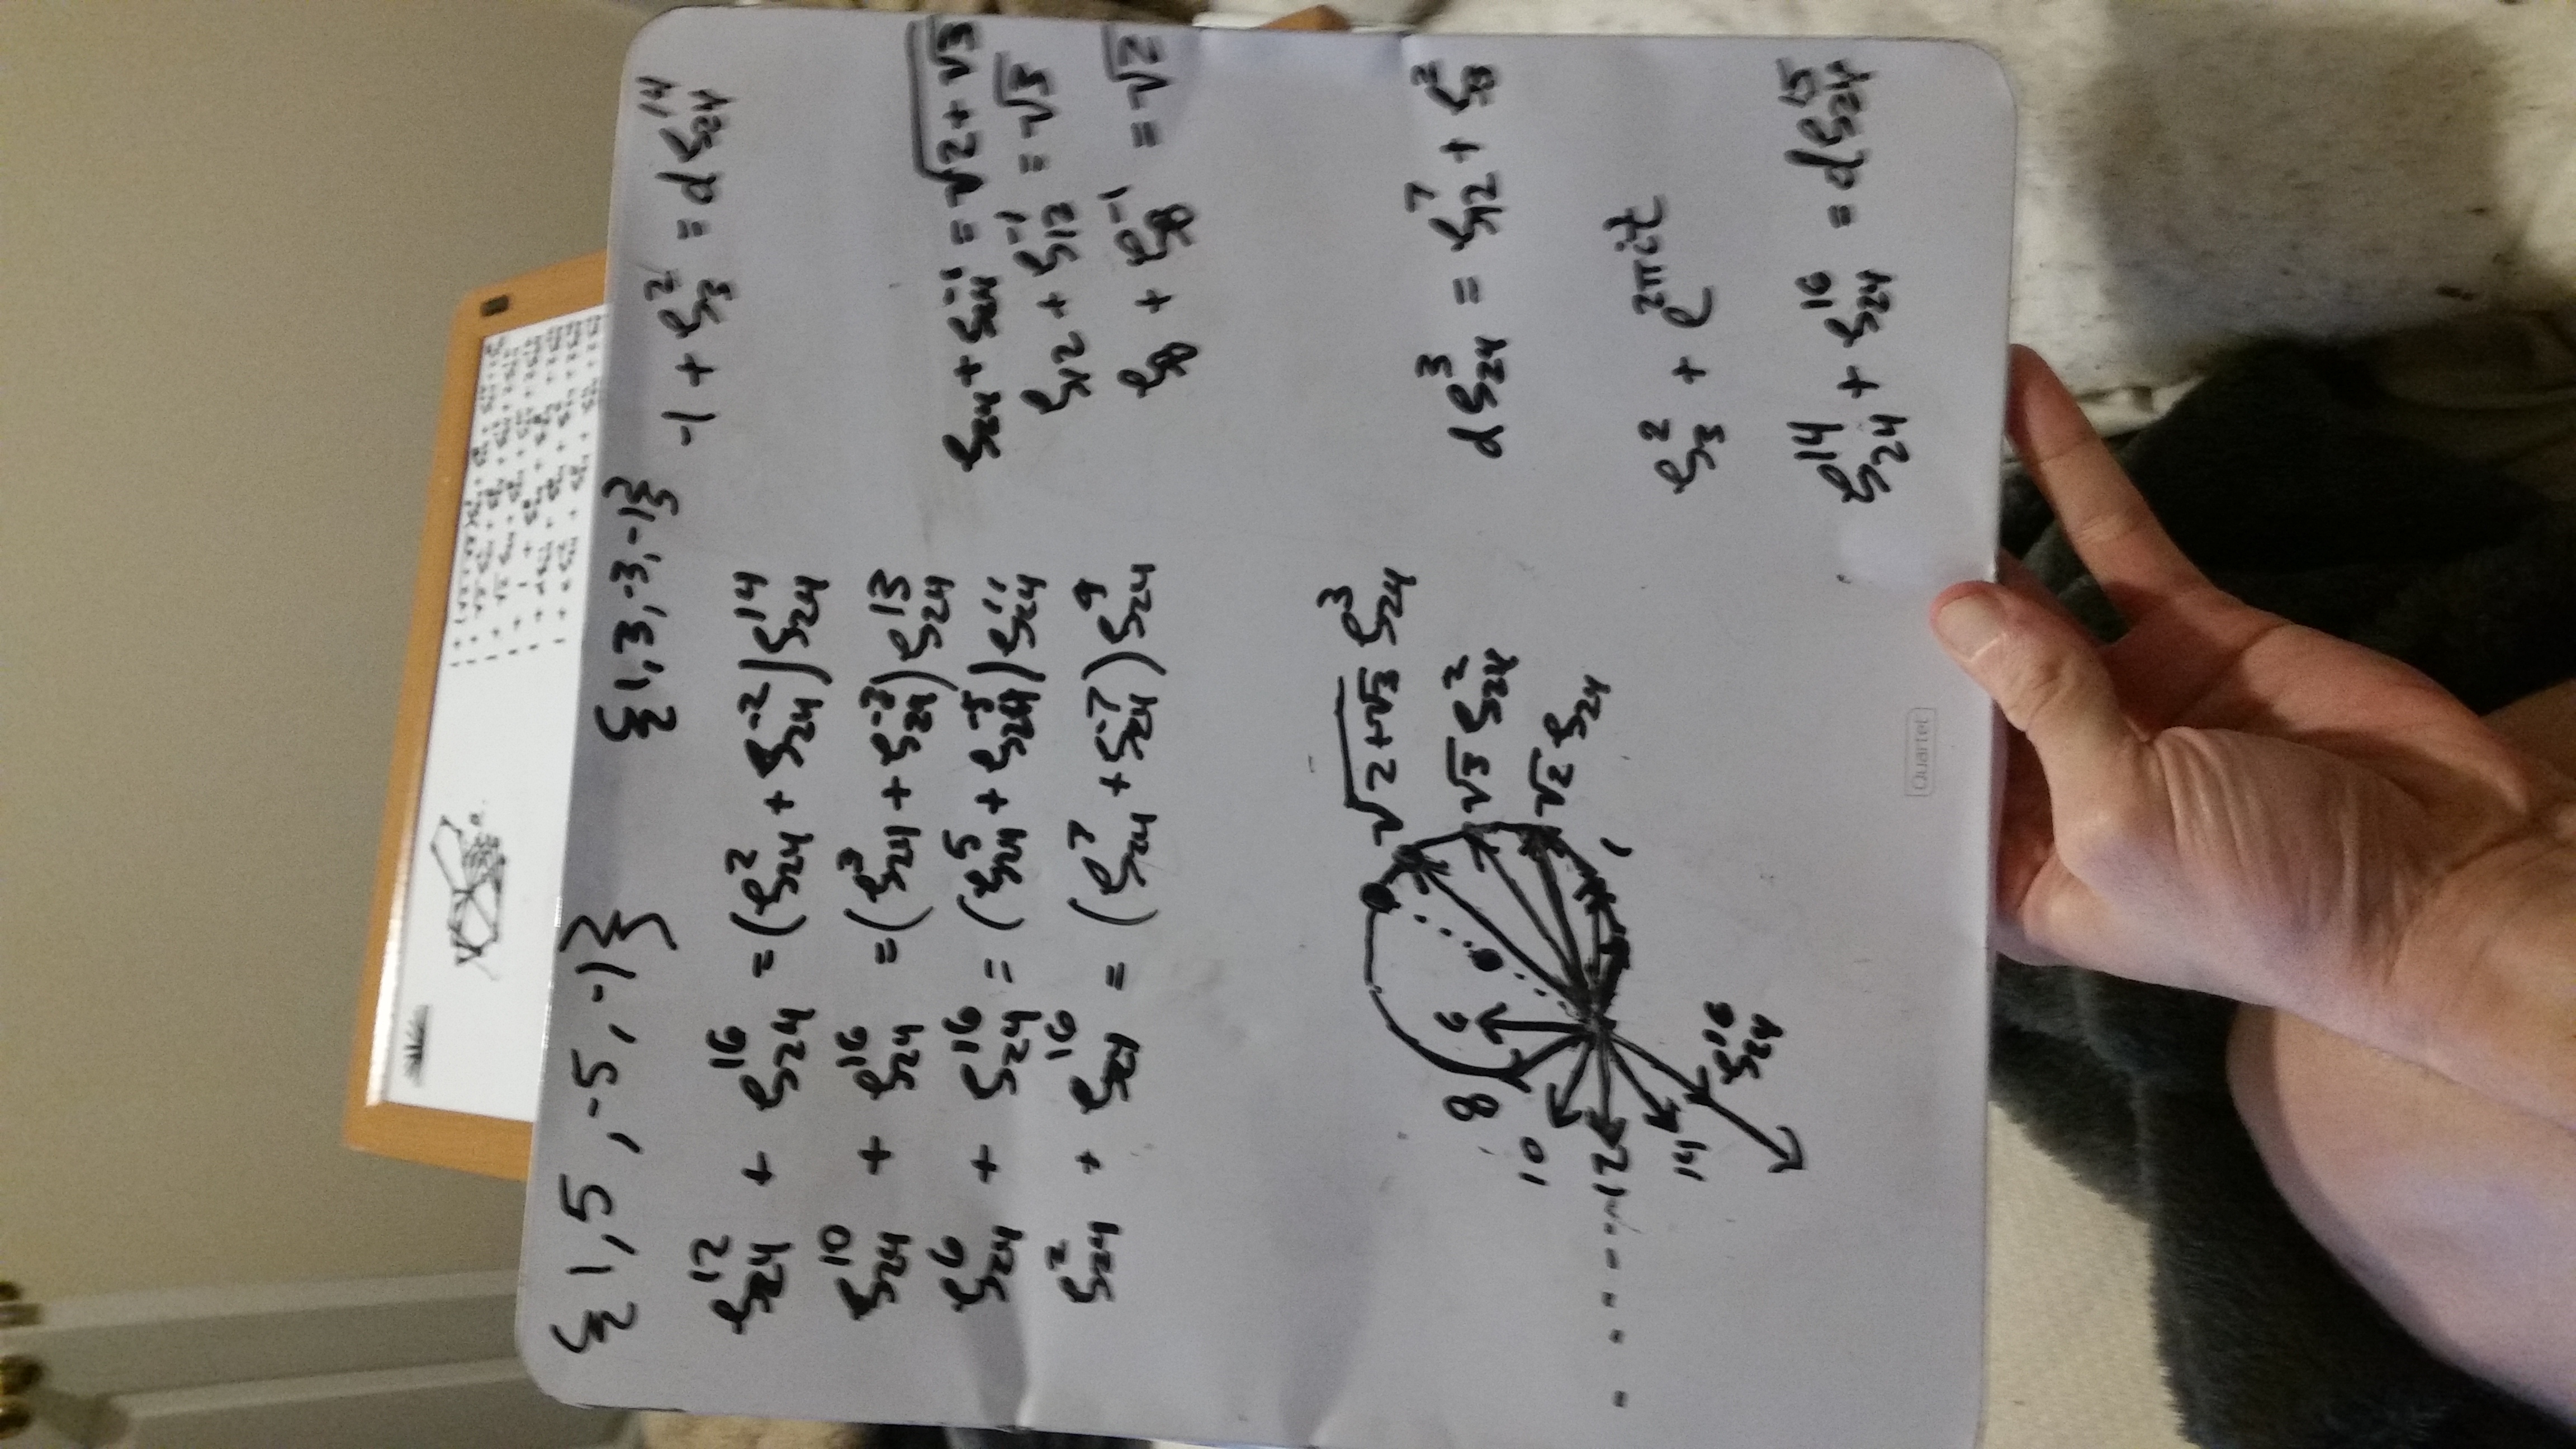 {1, 5, -5, -1}
{1, 3, -3, -1}
-1 + ζ₃² = dζ₂₄¹⁴
ζ₂₄¹² + ζ₂₄¹⁶ = (ζ₂₄² + ζ₂₄⁻²)ζ₂₄¹⁴
ζ₂₄¹⁰ + ζ₂₄¹⁶ = (ζ₂₄³ + ζ₂₄⁻³)ζ₂₄¹³
ζ₂₄⁶ + ζ₂₄¹⁶ = (ζ₂₄⁵ + ζ₂₄⁻⁵)ζ₂₄¹¹
ζ₂₄² + ζ₂₄¹⁶ = (ζ₂₄⁷ + ζ₂₄⁻⁷)ζ₂₄⁹
ζ₂₄ + ζ₂₄⁻¹ = √(2+√3)
ζ₁₂ + ζ₁₂⁻¹ = √3
ζ₈ + ζ₈⁻¹ = √2
√(2+√3) ζ₂₄³
√3 ζ₂₄²
√2 ζ₂₄
1
6
8
10
12
14
ζ₂₄¹⁶
dζ₂₄³ = ζ₁₂⁷ + ζ₃²
ζ₃² + e^{2πit}
ζ₂₄¹⁴ + ζ₂₄¹⁶ = dζ₂₄¹⁵
Quartet